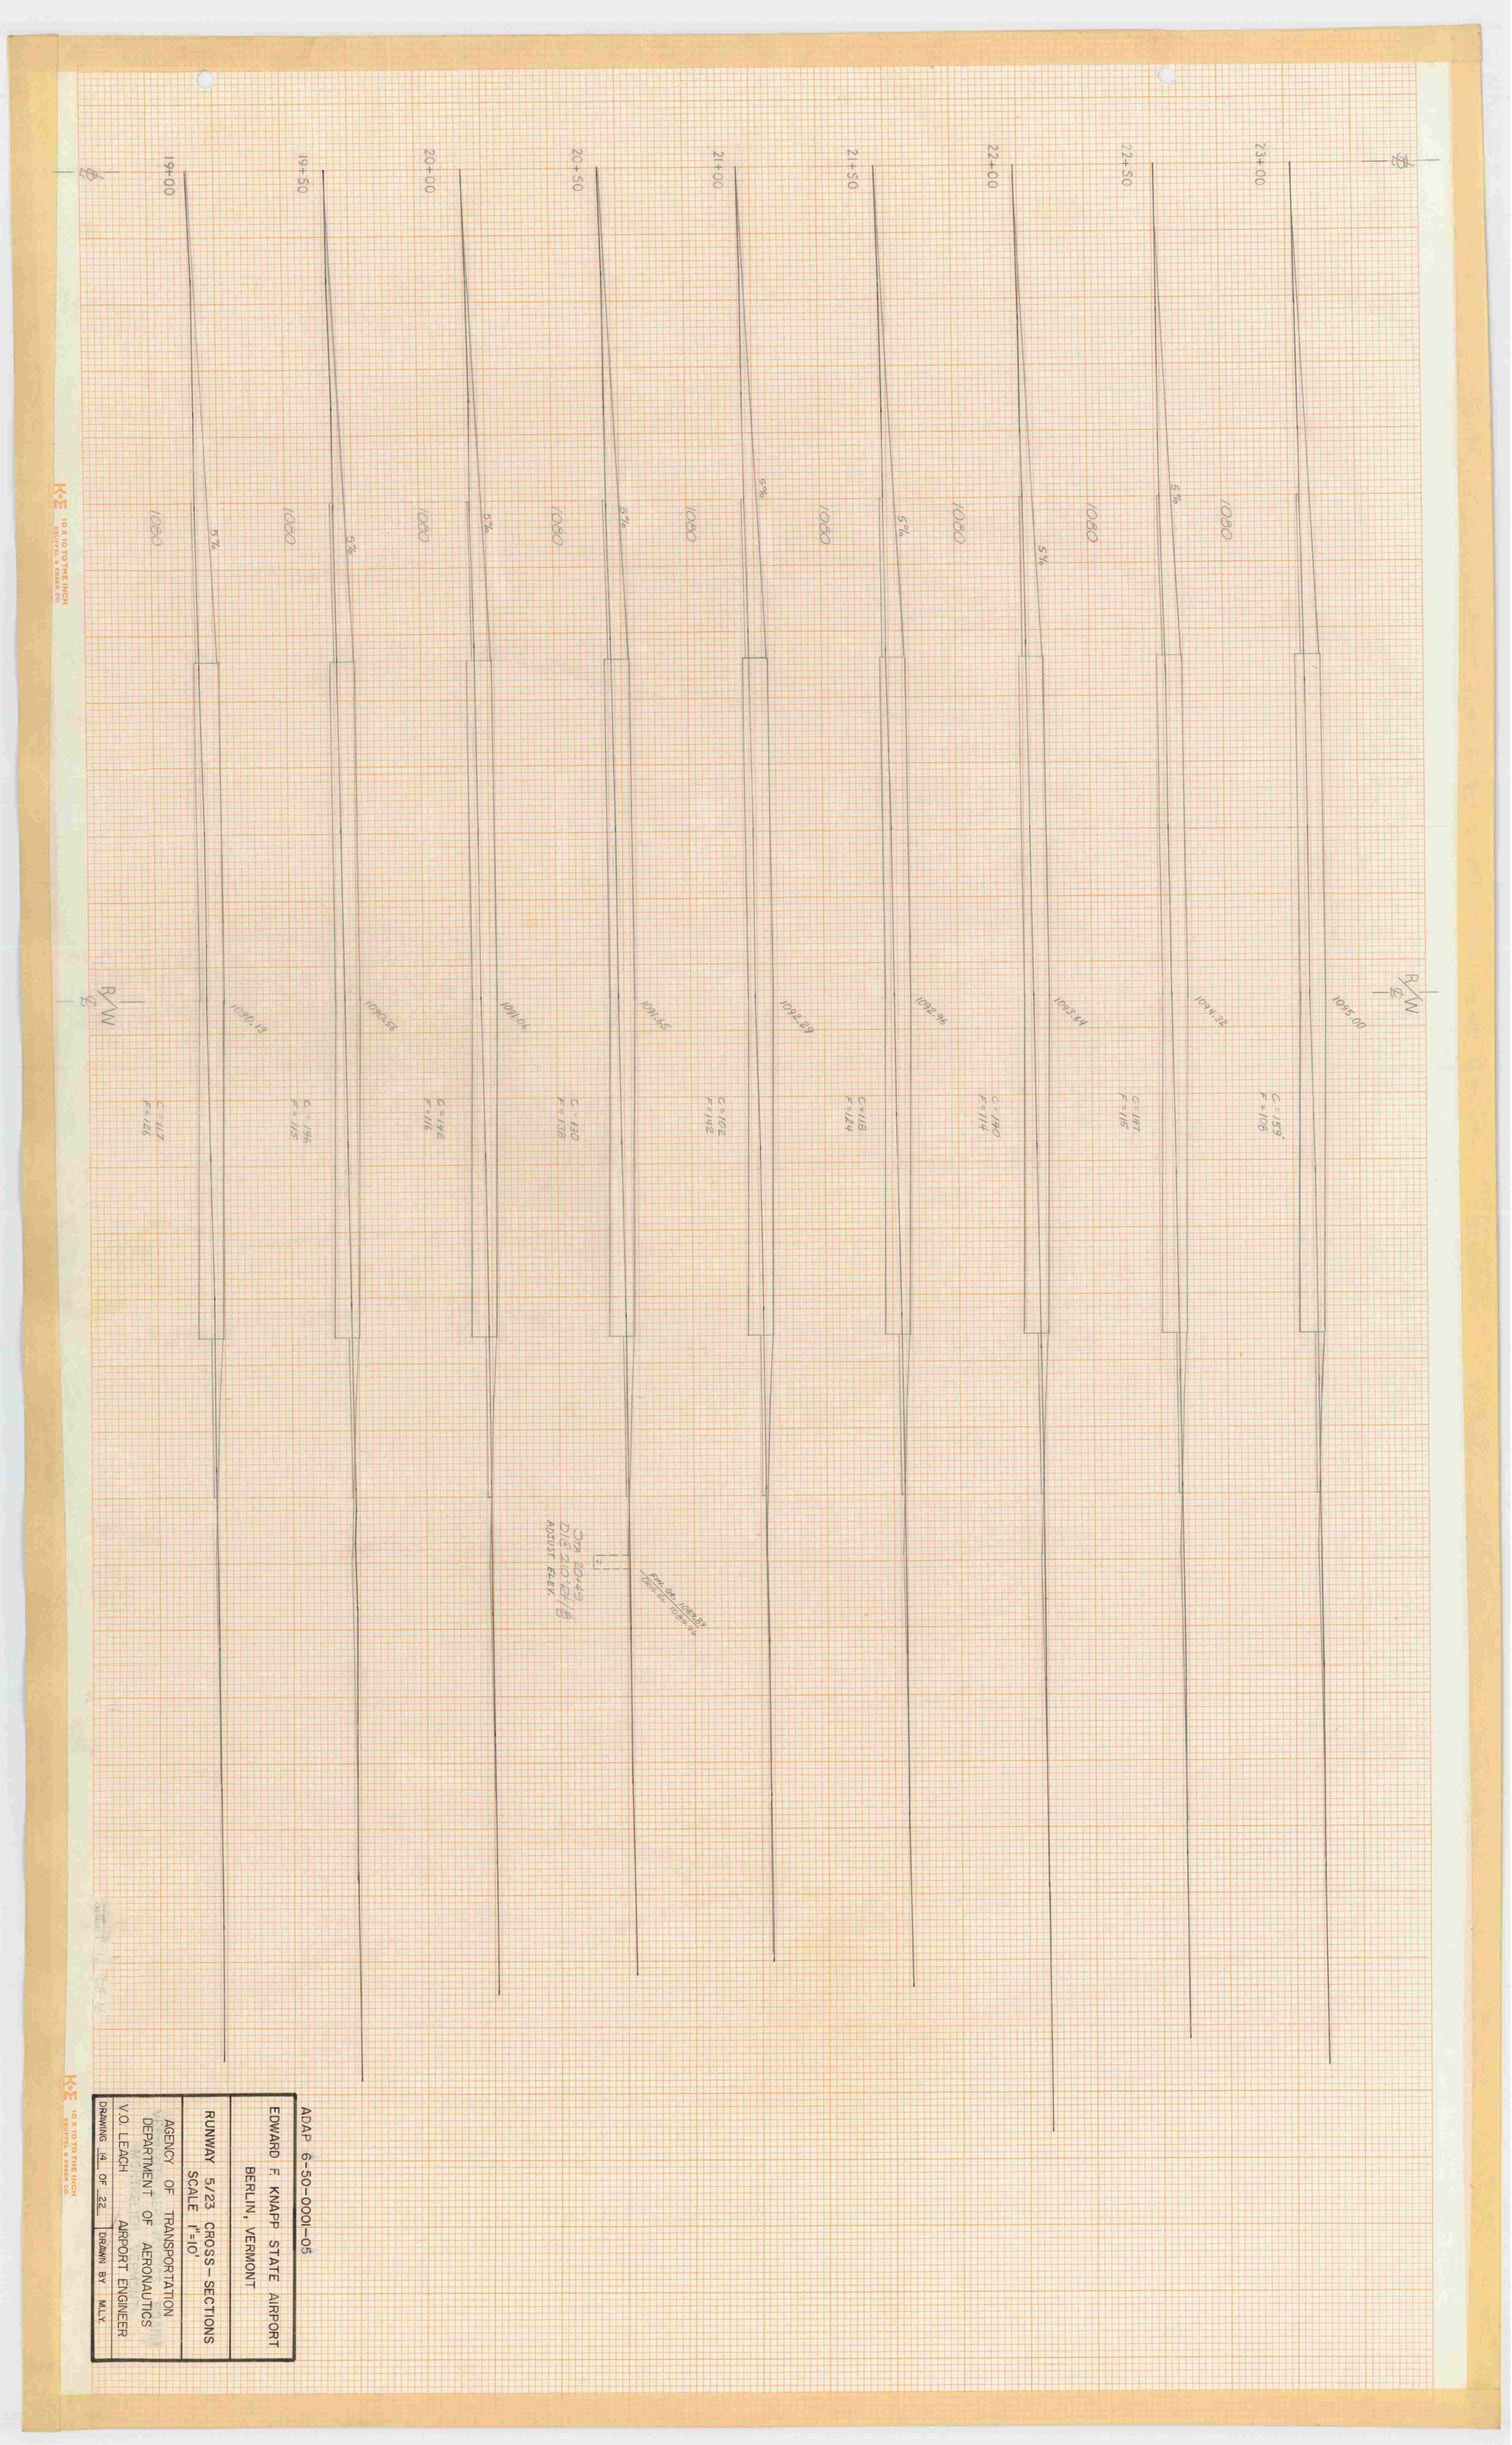 23+00
22+50
22+00
21+50
21+00
20+50
20+00
19+50
19+00
B
B
1080
1080
1080
1080
1080
1080
1080
1080
1080
5%
5%
5%
5%
5%
5%
5%
5%
R/W
℄
1095.00
1094.32
1093.64
1092.96
1092.29
1091.65
1091.06
1090.56
1090.13
R/W
℄
C=159
F=108
C=147
F=115
C=140
F=114
C=118
F=124
C=102
F=142
C=130
F=138
C=142
F=116
C=146
F=115
C=117
F=126
STA 20+49
D.I.@ 210' RT/B
ADJUST ELEV.
FIN. GR. 1089.89
K+E 10 X 10 TO THE INCH
KEUFFEL & ESSER CO.
ADAP 6-50-0001-05
EDWARD F. KNAPP STATE AIRPORT
BERLIN, VERMONT
RUNWAY 5/23 CROSS-SECTIONS
SCALE 1"=10'
AGENCY OF TRANSPORTATION
DEPARTMENT OF AERONAUTICS
V.O. LEACH AIRPORT ENGINEER
DRAWING 14 OF 22 DRAWN BY M.L.Y.
K+E 10 X 10 TO THE INCH
KEUFFEL & ESSER CO.